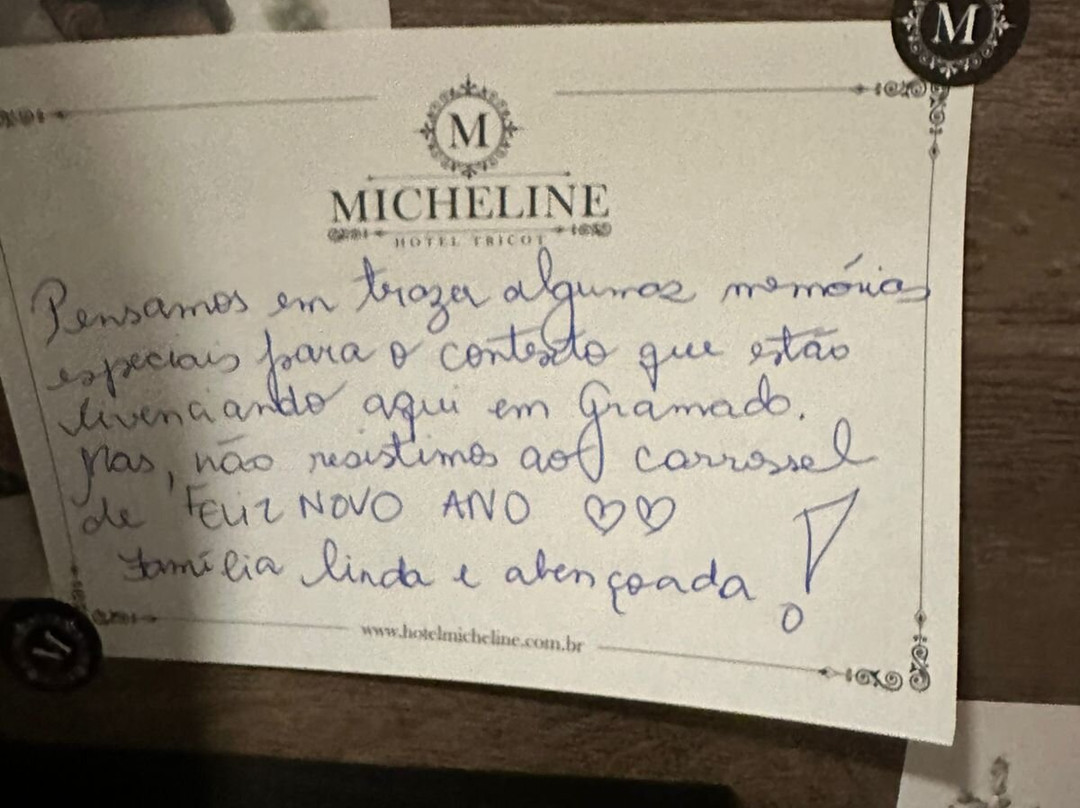 M
M
MICHELINE
HOTEL TRICOT
Pensamos em trazer algumas memórias
especiais para o contexto que estão
vivenciando aqui em Gramado.
Mas, não resistimos ao carrossel
de FELIZ NOVO ANO ♡♡
Família linda e abençoada !
www.hotelmicheline.com.br
M